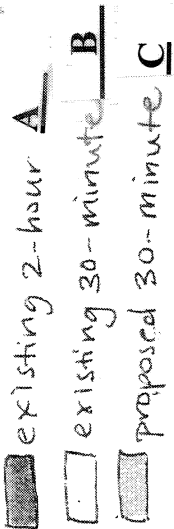 existing 2-hour A
existing 30-minute B
proposed 30-minute C